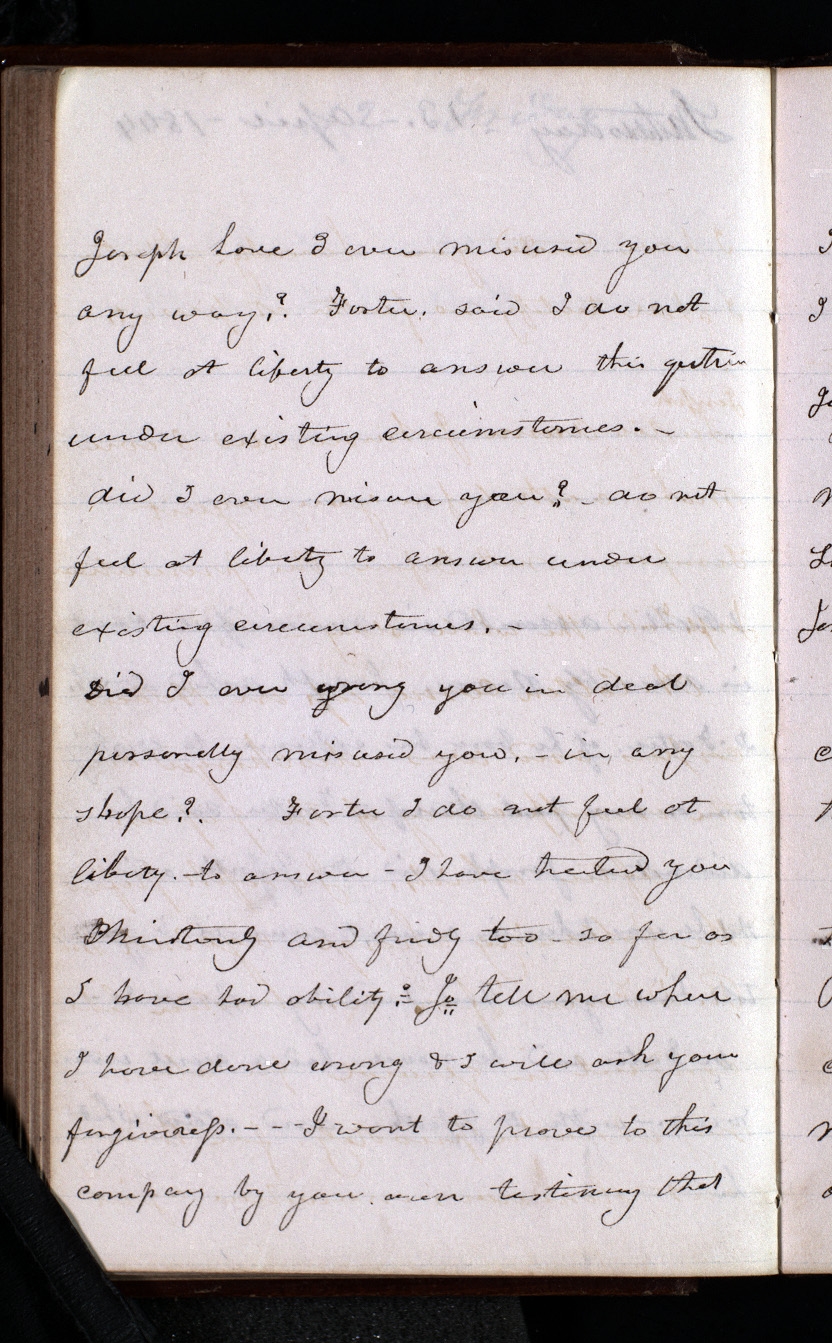 Joseph have I ever misused you
any way? Foster. said I do not
feel at liberty to answer this
under existing circumstances. -
did I ever misuse you? - do not
feel at liberty to answer under
existing circumstances. -
Did I ever wrong you in deal
personally misused you. - in any
shape? Foster I do not feel at
liberty. - to answer - I have treated you
and too - so far as
I have had ability: Jo tell me where
I have done wrong & I will ask your
forgiveness. - - - I want to prove to this
company by your own testimony that